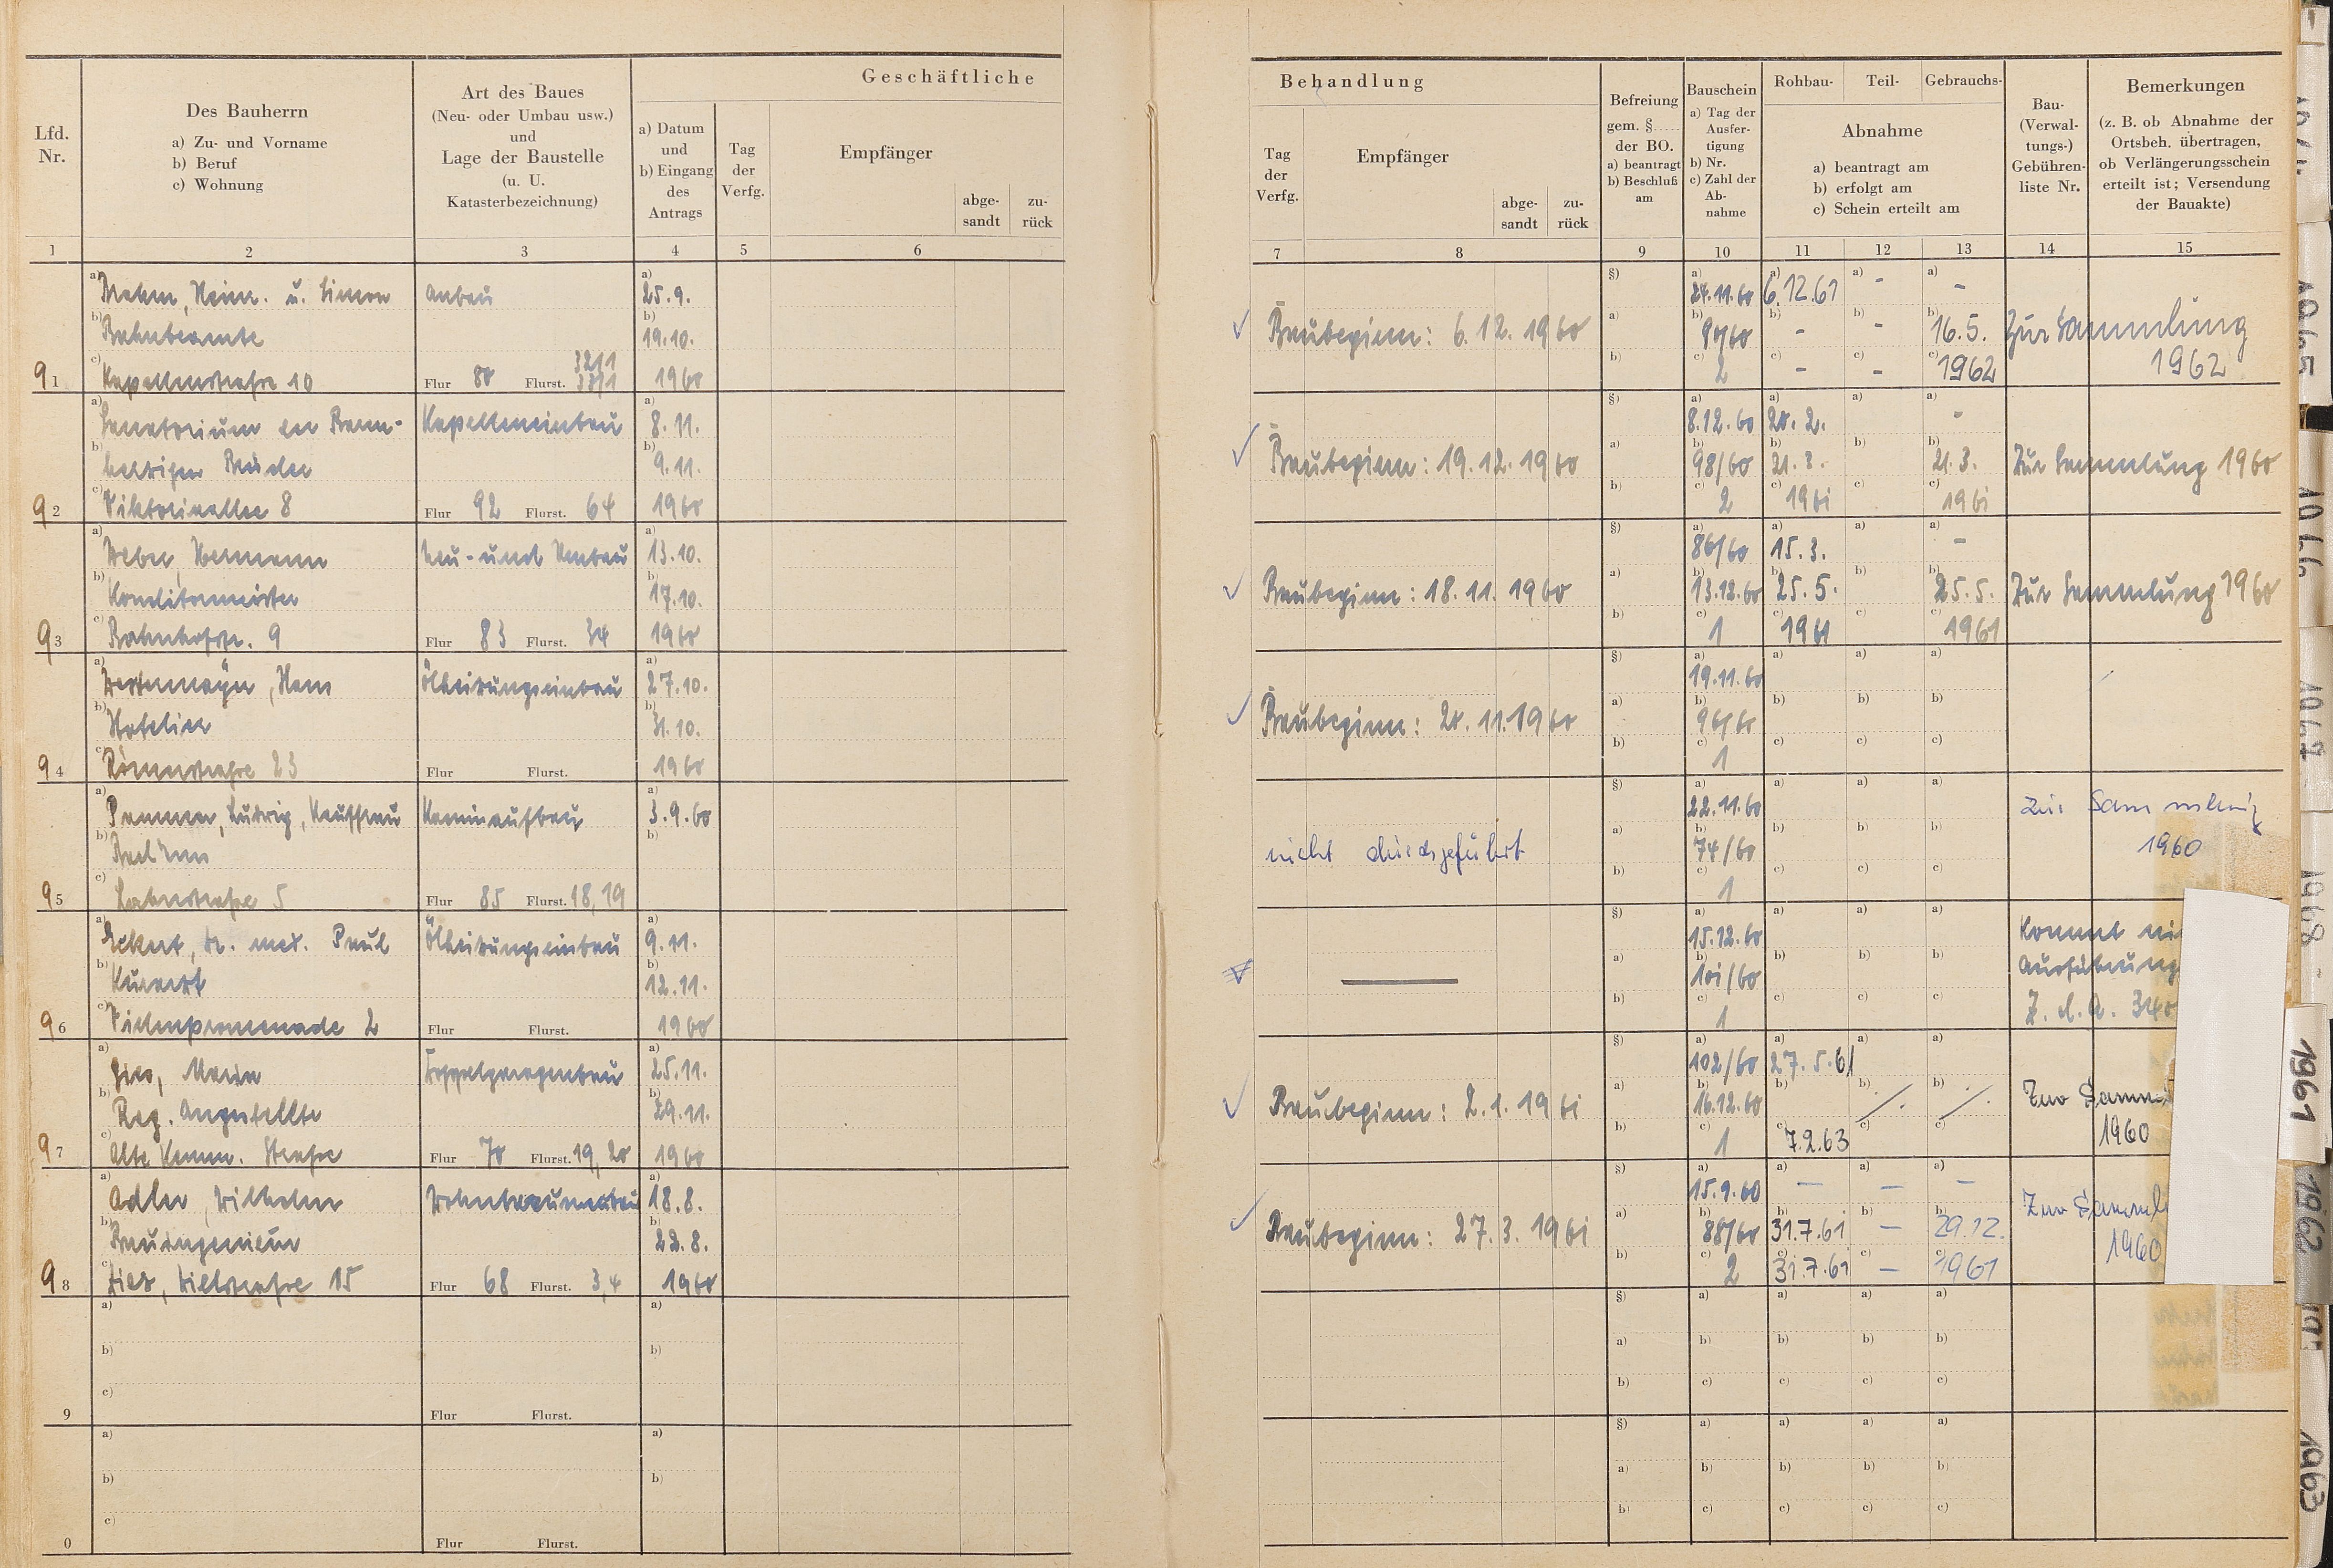 Geschäftliche
Lfd.
Nr.
Des Bauherrn
a) Zu- und Vorname
b) Beruf
c) Wohnung
Art des Baues
(Neu- oder Umbau usw.)
und
Lage der Baustelle
(u. U.
Katasterbezeichnung)
a) Datum
und
b) Eingang
des
Antrags
Tag
der
Verfg.
Empfänger
abge-
sandt
zu-
rück
1 2 3 4 5 6
Behandlung
Tag
der
Verfg.
Empfänger
abge-
sandt
zu-
rück
Befreiung
gem. §
der BO.
a) beantragt
b) Beschluß
am
Bauschein
a) Tag der
Ausfer-
tigung
b) Nr.
c) Zahl der
Ab-
nahme
Rohbau- Teil- Gebrauchs-
Abnahme
a) beantragt am
b) erfolgt am
c) Schein erteilt am
Bau-
(Verwal-
tungs-)
Gebühren-
liste Nr.
Bemerkungen
(z. B. ob Abnahme der
Ortsbeh. übertragen,
ob Verlängerungsschein
erteilt ist; Versendung
der Bauakte)
7 8 9 10 11 12 13 14 15
91
a) Heinr. u. Simon
b) Bahnbeamte
c) Kapellenstraße 10
Anbau
Flur 80 Flurst.
a) 25.9.
b) 19.10.
1960
Baubeginn: 6.12.1960
§) a) b)
a) 24.11.60 b) 90/60 c) 2
a) 6.12.61 b) - c) -
a) - b) - c) -
a) - b) 16.5. c) 1962
Zur Sammlung
1962
92
a) Sanatorium der Barm-
b) herzigen Brüder
c) Viktoriaallee 8
Kapelleneinbau
Flur 92 Flurst. 64
a) 8.11.
b) 9.11.
1960
Baubeginn: 19.12.1960
§) a) b)
a) 8.12.60 b) 98/60 c) 2
a) 20.2. b) 21.3. c) 1961
a) b) c)
a) - b) 21.3. c) 1961
Zur Sammlung 1960
93
a) Weber, Hermann
b) Konditormeister
c) Bahnhofstr. 9
Neu- und Umbau
Flur 83 Flurst. 34
a) 13.10.
b) 17.10.
1960
Baubeginn: 18.11.1960
§) a) b)
a) 86/60 b) 13.12.60 c) 1
a) 15.3. b) 25.5. c) 1961
a) b) c)
a) - b) 25.5. c) 1961
Zur Sammlung 1960
94
a) Hans
b) Hotelier
c) Römerstraße 23
Ölheizungseinbau
Flur Flurst.
a) 27.10.
b) 31.10.
1960
Baubeginn: 20.11.1960
§) a) b)
a) 19.11.60 b) 96/60 c) 1
a) b) c)
a) b) c)
a) b) c)
95
a) Ludwig, Kauffrau
b)
c) Lahnstraße 5
Kaminaufbau
Flur 85 Flurst. 18, 19
a) 3.9.60
b)
nicht durchgeführt
§) a) b)
a) 22.11.60 b) 74/60 c) 1
a) b) c)
a) b) c)
a) b) c)
Zur Sammlung
1960
96
a) Eckert, Dr. med. Paul
b) Kurarzt
c) Villenpromenade 2
Ölheizungseinbau
Flur Flurst.
a) 9.11.
b) 12.11.
1960
§) a) b)
a) 15.12.60 b) 101/60 c) 1
a) b) c)
a) b) c)
a) b) c)
Kommt ni
Ausführung
Z. d. A. 340
97
a) Maria
b) Reg. Angestellte
c) Alte Kemm. Straße
Doppelgaragenbau
Flur 70 Flurst. 19, 20
a) 25.11.
b) 29.11.
1960
Baubeginn: 2.1.1961
§) a) b)
a) 102/60 b) 16.12.60 c) 1
a) 27.5.61 b) c) 7.2.63
a) b) ./. c)
a) b) ./. c)
Zur Samm
1960
98
a) Adler, Wilhelm
b) Bauingenieur
c) Diez, Dillstraße 15
Wohnhausneubau
Flur 68 Flurst. 3,4
a) 18.8.
b) 22.8.
1960
Baubeginn: 27.3.1961
§) a) b)
a) 15.9.60 b) 88/60 c) 2
a) — b) 31.7.61 c) 31.7.61
a) — b) — c) —
a) — b) 29.12. c) 1961
Zur Samml
1960
9
a)
b)
c)
Flur Flurst.
a)
b)
§) a) b)
a) b) c)
a) b) c)
a) b) c)
a) b) c)
0
a)
b)
c)
Flur Flurst.
a)
b)
§) a) b)
a) b) c)
a) b) c)
a) b) c)
a) b) c)
1965
1966
1967
1968
1961
1962
1963